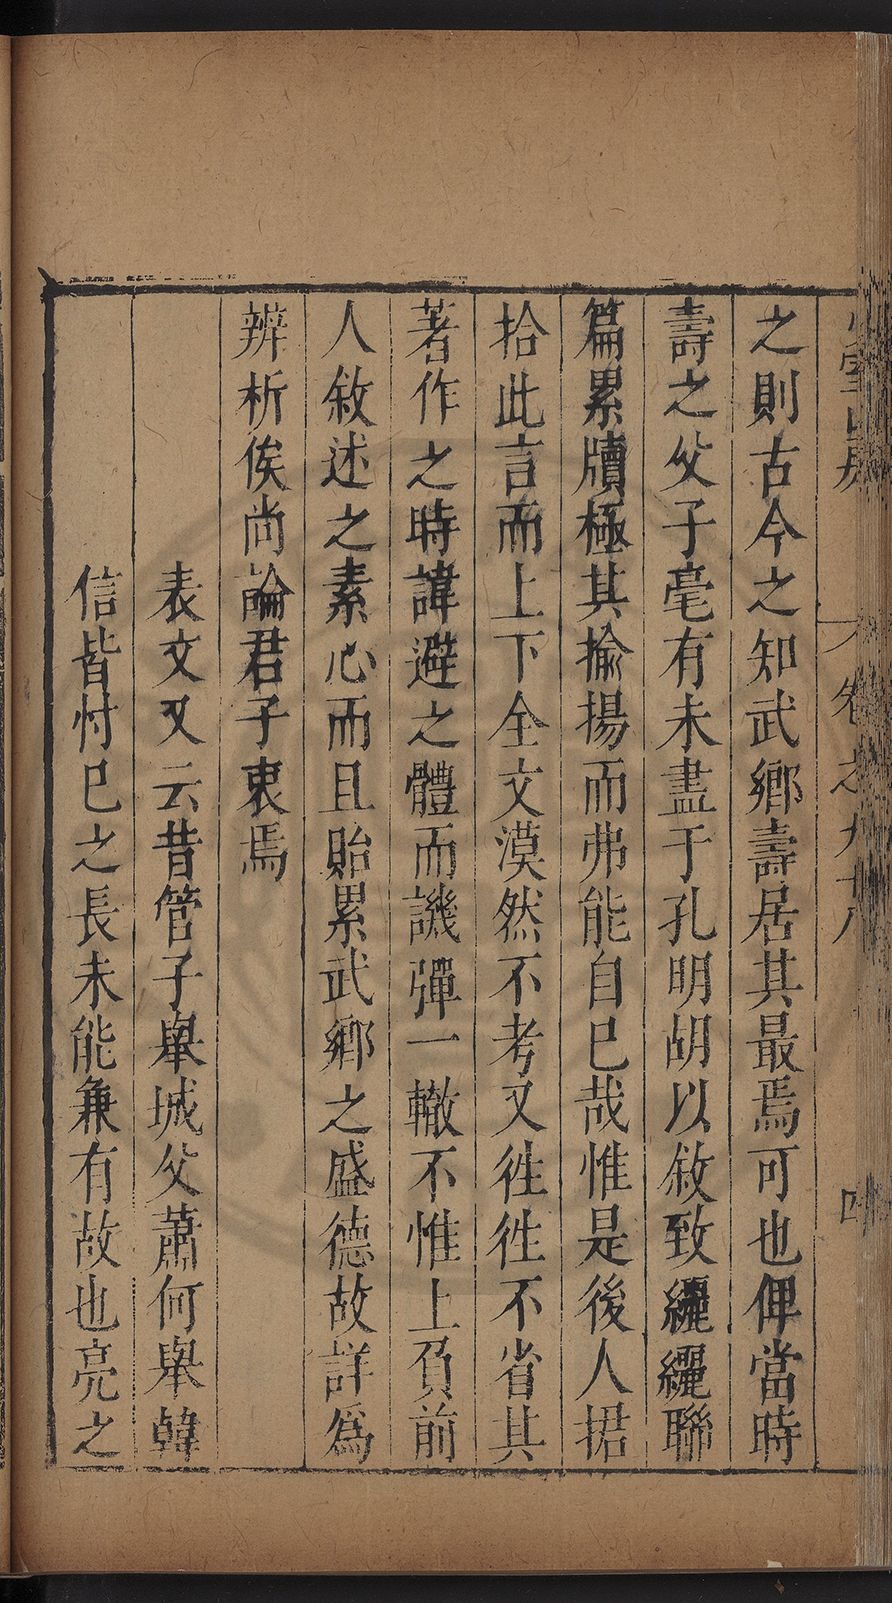 之則古今之知武鄉壽居其最焉可也俾當時
壽之父子毫有未盡于孔明胡以敘致纚纚聯
篇累牘極其揄揚而弗能自已哉惟是後人捃
拾此言而上下全文漠然不考又徃徃不省其
著作之時諱避之體而譏彈一轍不惟上負前
人敘述之素心而且貽累武鄉之盛德故詳為
辨析俟尚論君子衷焉
表文又云昔管子舉城父蕭何舉韓
信皆忖已之長未能兼有故也亮之
卷之九十八
四